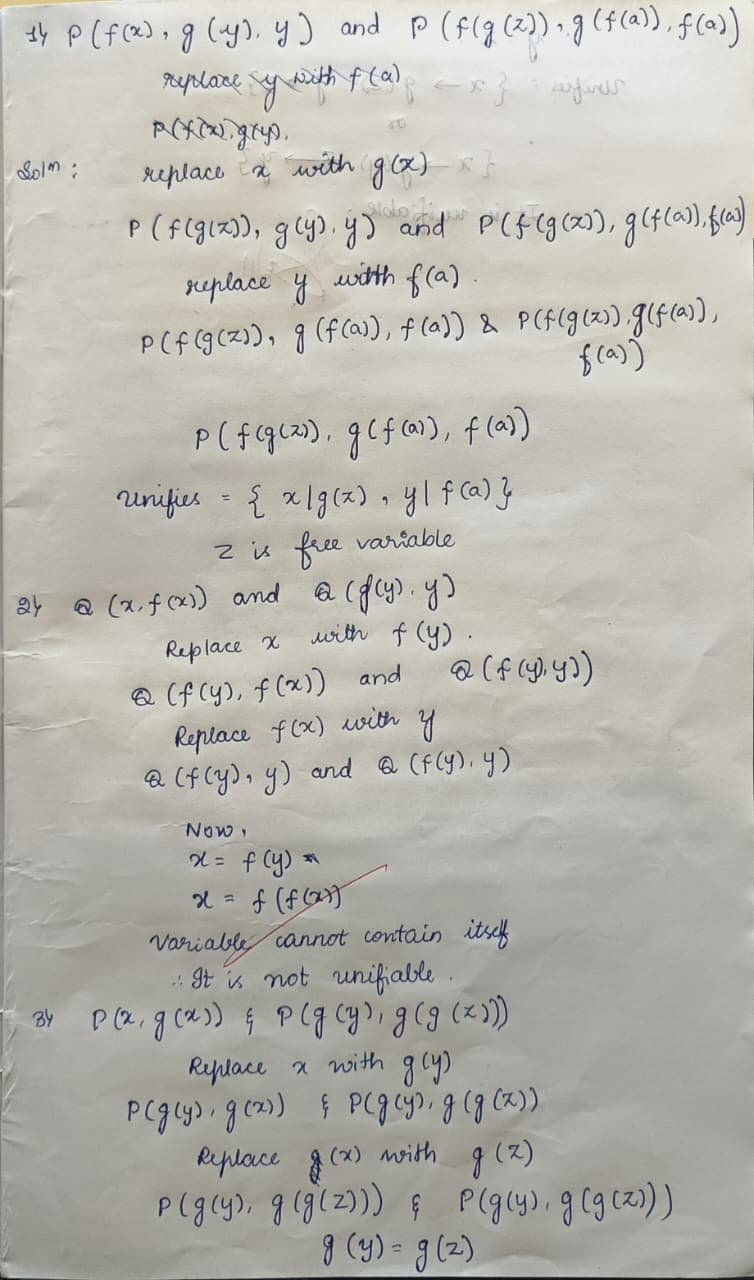 1) P(f(x), g(y), y) and P(f(g(z)), g(f(a)), f(a))
replace y with f(a)
P(f(x), g(y),
Solⁿ: replace x with g(x)
P(f(g(z)), g(y), y) and P(f(g(z)), g(f(a)), f(a))
replace y with f(a).
P(f(g(z)), g(f(a)), f(a)) & P(f(g(z)), g(f(a)),
f(a))
P(f(g(z)), g(f(a)), f(a))
Unifies = { x|g(z), y|f(a) }
z is free variable
2) Q(x, f(x)) and Q(f(y), y)
Replace x with f(y).
Q(f(y), f(x)) and Q(f(y), y))
Replace f(x) with y
Q(f(y), y) and Q(f(y), y)
Now,
x = f(y)
x = f(f(x))
Variable cannot contain itself
∴ It is not unifiable.
3) P(x, g(x)) & P(g(y), g(g(z)))
Replace x with g(y)
P(g(y), g(x)) & P(g(y), g(g(z))
Replace g(x) with g(z)
P(g(y), g(g(z))) & P(g(y), g(g(z)))
g(y) = g(z)